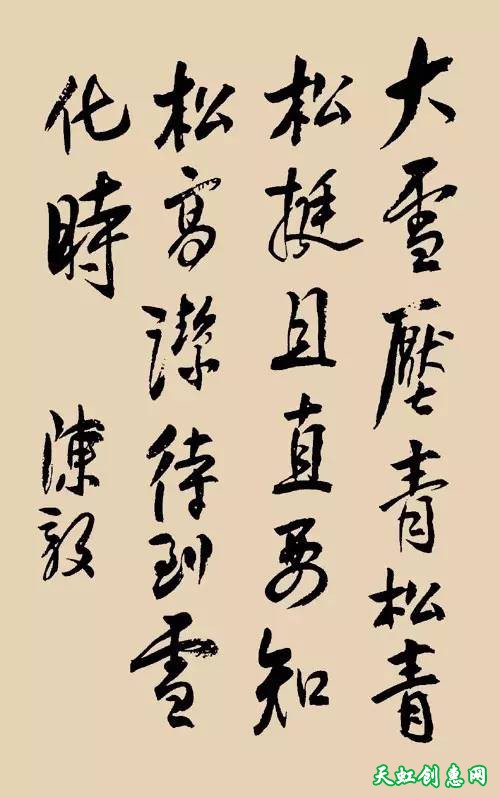 大雪壓青松青
松挺且直要知
松高潔待到雪
化時
陳毅
天虹创惠网